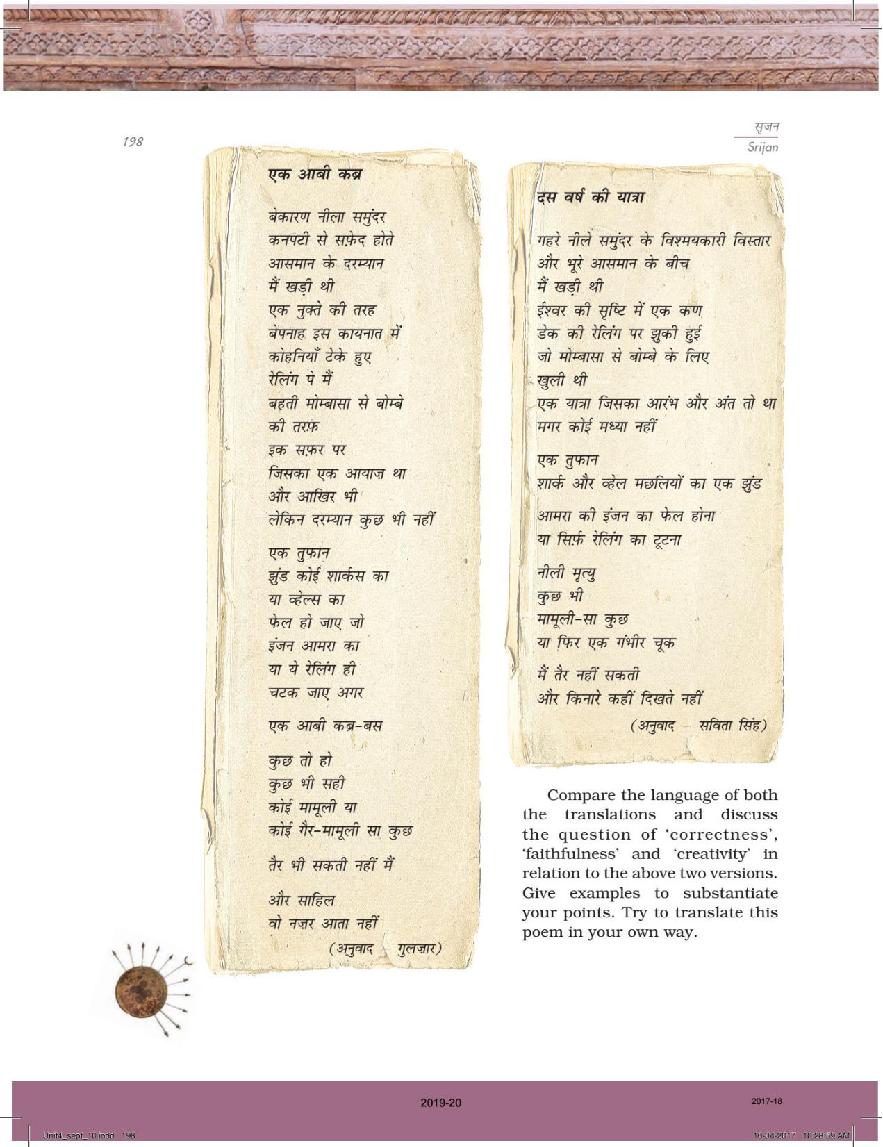 198
सृजन
Srijan
एक आबी कब्र
बेकारण नीला समुंदर
कनपटी से सफ़ेद होते
आसमान के दरम्यान
मैं खड़ी थी
एक नुक्ते की तरह
बेपनाह इस कायनात में
कोहनियाँ टेके हुए
रेलिंग पे मैं
बहती मोम्बासा से बोम्बे
की तरफ़
इक सफ़र पर
जिसका एक आयाज था
और आखिर भी
लेकिन दरम्यान कुछ भी नहीं
एक तुफान
झुंड कोई शार्कस का
या व्हेल्स का
फेल हो जाए जो
इंजन आमरा का
या ये रेलिंग ही
चटक जाए अगर
एक आबी कब्र-बस
कुछ तो हो
कुछ भी सही
कोई मामूली या
कोई गैर-मामूली सा कुछ
तैर भी सकती नहीं मैं
और साहिल
वो नज़र आता नहीं
(अनुवाद गुलज़ार)
दस वर्ष की यात्रा
गहरे नीले समुंदर के विश्मयकारी विस्तार
और भूरे आसमान के बीच
मैं खड़ी थी
ईश्वर की सृष्टि में एक कण
डेक की रेलिंग पर झुकी हुई
जो मोम्बासा से बोम्बे के लिए
खुली थी
एक यात्रा जिसका आरंभ और अंत तो था
मगर कोई मध्या नहीं
एक तुफान
शार्क और व्हेल मछलियों का एक झुंड
आमरा की इंजन का फेल होना
या सिर्फ़ रेलिंग का टूटना
नीली मृत्यु
कुछ भी
मामूली-सा कुछ
या फिर एक गंभीर चूक
मैं तैर नहीं सकती
और किनारे कहीं दिखते नहीं
(अनुवाद – सविता सिंह)
Compare the language of both
the translations and discuss
the question of ‘correctness’,
‘faithfulness’ and ‘creativity’ in
relation to the above two versions.
Give examples to substantiate
your points. Try to translate this
poem in your own way.
2019-20
2017-18
Unit4_sept_10.indd 198